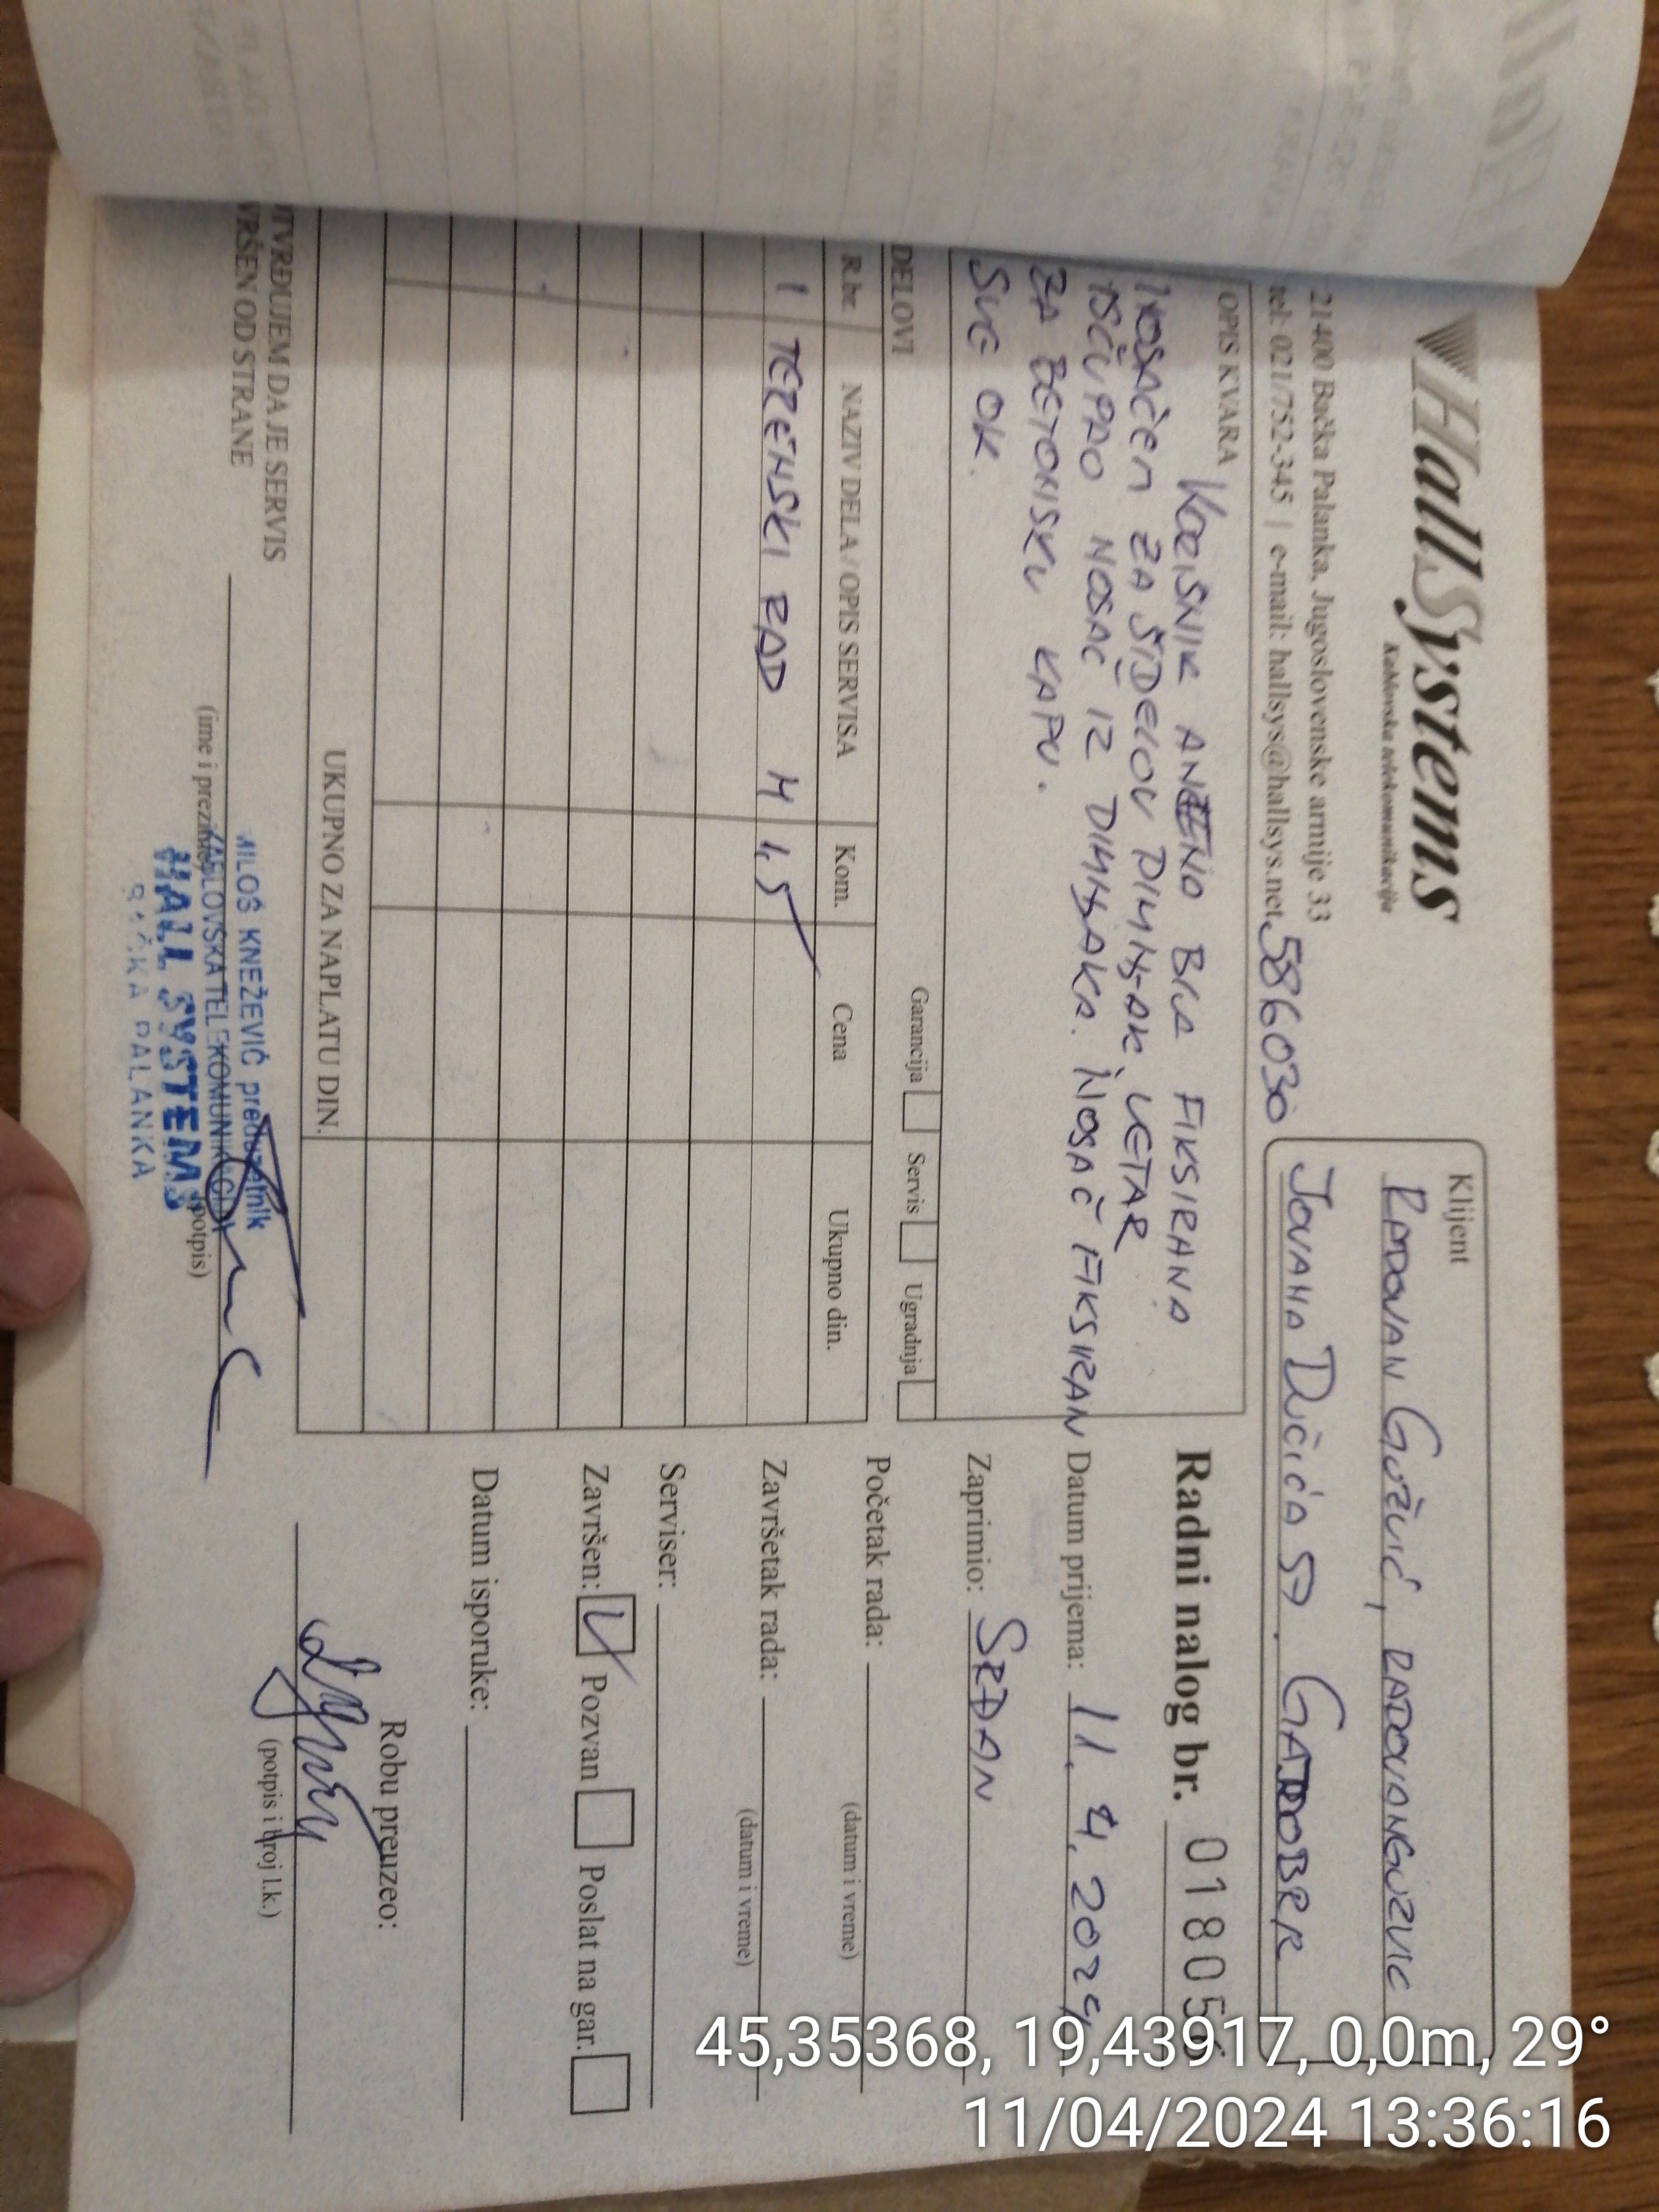 HallSystems
Kablovska telekomunikacija
21400 Bačka Palanka, Jugoslovenske armije 33
tel: 021/752-345 | e-mail: hallsys@hallsys.net
586030
Klijent
RADOVAN GUŽVIĆ, RADOVANGUZVIC
JOVANA DUČIĆA 57. GAJDOBRA
OPIS KVARA
KORISNIK ANTENO BILA FIKSIRANA
NOSAČEM ZA ŠIDELOV DIMNJAK, VETAR
IŠČUPAO NOSAČ IZ DIMNJAKA. NOSAČ FIKSIRAN
ZA BETONSKU KAPU.
SVE OK.
Radni nalog br. 01805
Datum prijema: 11. 4. 2024
Zaprimio: SRĐAN
Početak rada:
(datum i vreme)
Završetak rada:
(datum i vreme)
Serviser:
Završen: Pozvan Poslat na gar.
Datum isporuke:
Robu preuzeo:
(potpis i broj l.k.)
DELOVI
Garancija Servis Ugradnja
R.br. NAZIV DELA / OPIS SERVISA Kom. Cena Ukupno din.
1 TERENSKI RAD H 1,5
UKUPNO ZA NAPLATU DIN.
POTVRĐUJEM DA JE SERVIS
IZVRŠEN OD STRANE
(ime i prezime)
(potpis)
MILOŠ KNEŽEVIĆ preduzetnik
KABLOVSKA TELEKOMUNIKACIJA
HALL SYSTEMS
BAČKA PALANKA
45,35368, 19,43917, 0,0m, 29°
11/04/2024 13:36:16